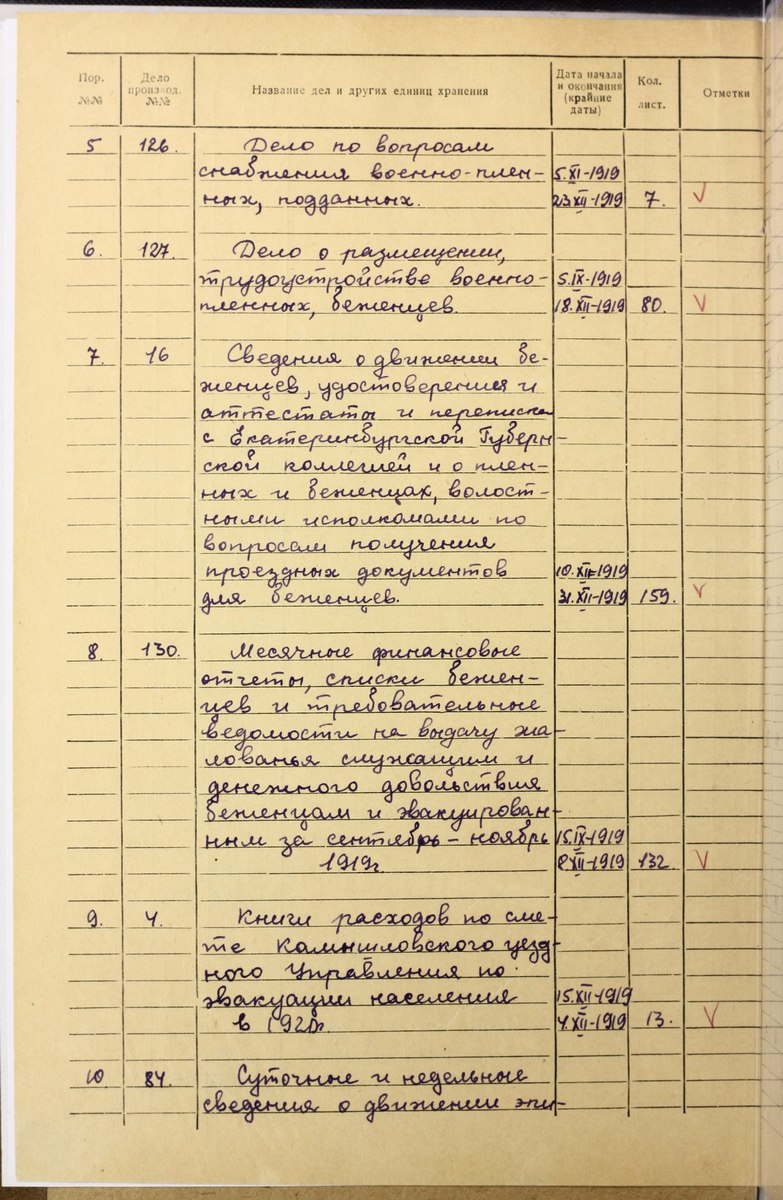 Пор. №№ Дело производ. №№ Название дел и других единиц хранения Дата начала и окончания (крайние даты) Кол. лист. Отметки
5 126. Дело по вопросам
снабжения военно-плен- 5.XI-1919
ных, подданных. 23.XII-1919 7. V
6. 127. Дело о размещении,
трудоустройстве военно- 5.IX-1919
пленных, беженцев. 18.XII-1919 80. V
7. 16 Сведения о движении бе-
женцев, удостоверения и
аттестаты и переписка
с Екатеринбургской Губерн-
ской коллегией и о плен-
ных и беженцах, волост-
ными исполкомами по
вопросам получения
проездных документов 10.XII-1919
для беженцев. 31.XII-1919 159. V
8. 130. Месячные финансовые
отчеты, списки бежен-
цев и требовательные
ведомости на выдачу жа-
лованья служащим и
денежного довольствия
беженцам и эвакуирован-
ным за сентябрь - ноябрь 15.IX-1919
1919г. 8.XII-1919 132 V
9. 4. Книги расходов по сме-
те Камышловского уезд-
ного Управления по
эвакуации населения 15.XII-1919
в 4.XII-1919 13. V
10 84. Суточные и недельные
сведения о движении эпи-